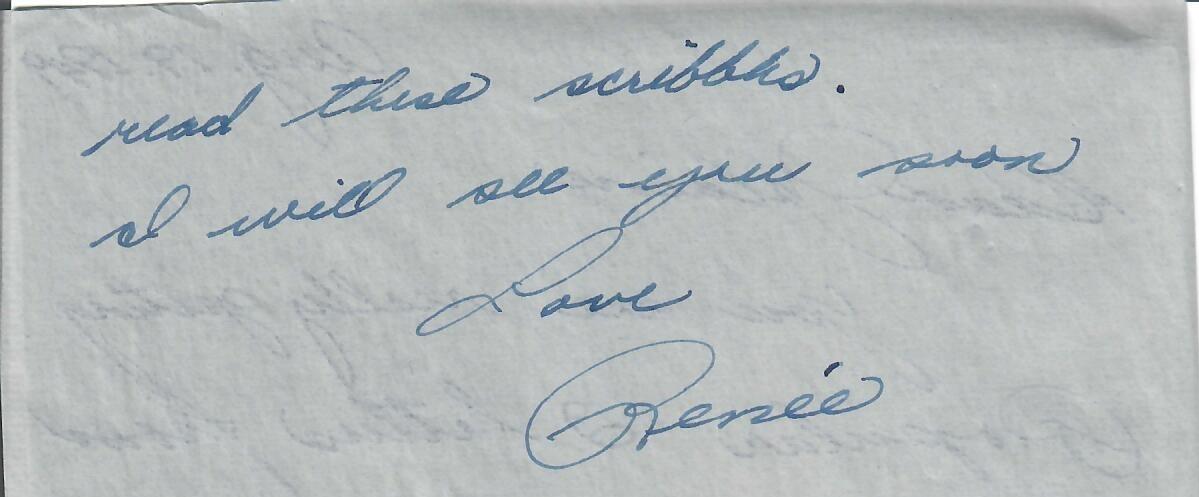 read these scribbles.
I will see you soon
Love
Renée